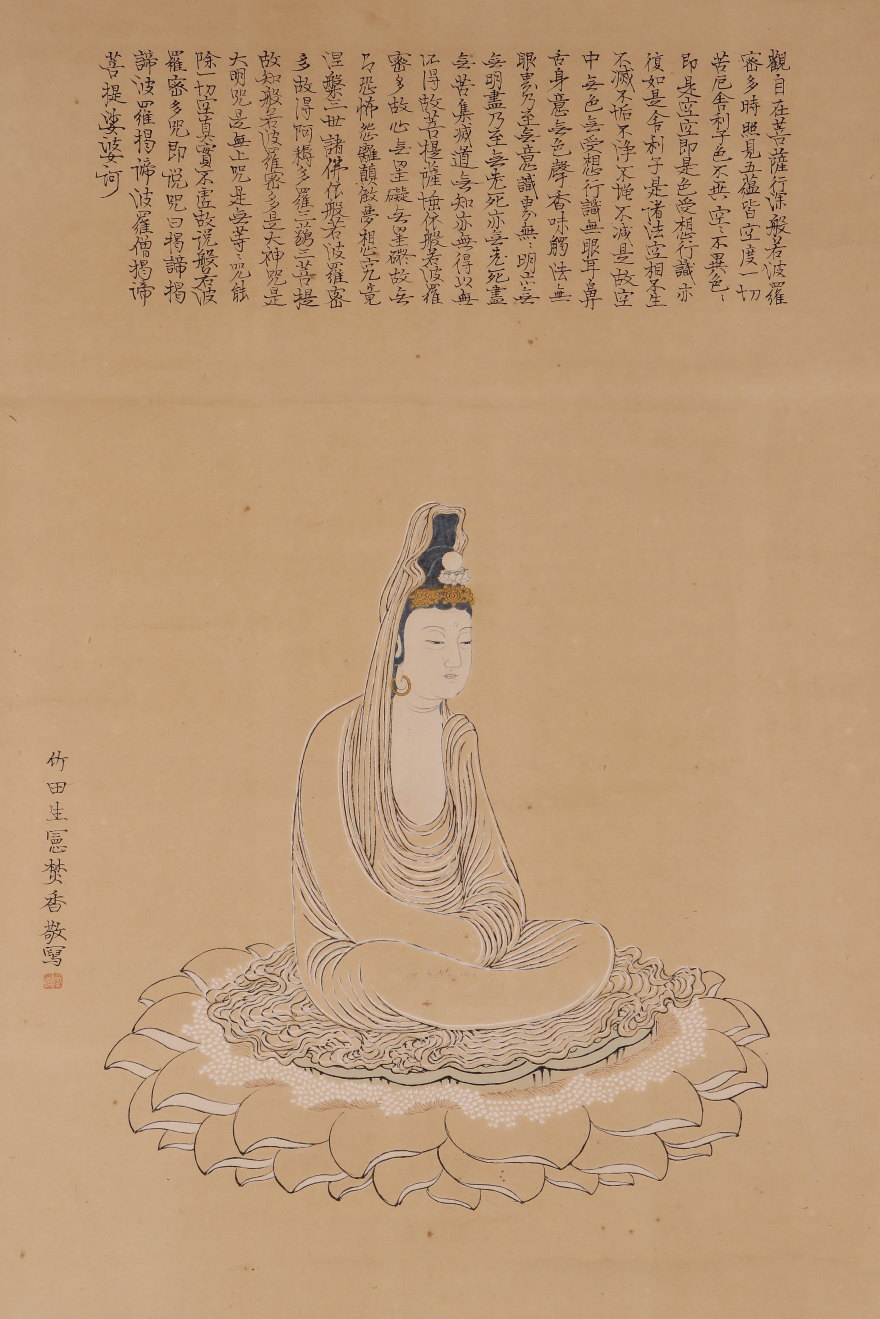 觀自在菩薩行深般若波羅
密多時照見五蘊皆空度一切
苦厄舍利子色不異空〻不異色〻
即是空空即是色受想行識亦
復如是舍利子是諸法空相不生
不滅不垢不淨不增不減是故空
中無色無受想行識無眼耳鼻
舌身意無色聲香味觸法無
眼界乃至無意識界無〻明亦無
無明盡乃至無老死亦無老死盡
無苦集滅道無知亦無得以無
所得故菩提薩埵依般若波羅
密多故心無罣礙無罣礙故無
有恐怖遠離顛倒夢想究竟
涅槃三世諸佛依般若波羅密
多故得阿耨多羅三藐三菩提
故知般若波羅密多是大神咒是
大明咒是無上咒是無等〻咒能
除一切空真實不虛故說般若波
羅密多咒即說咒曰揭諦揭
諦波羅揭諦波羅僧揭諦
菩提娑婆訶
竹田生憲焚香敬寫